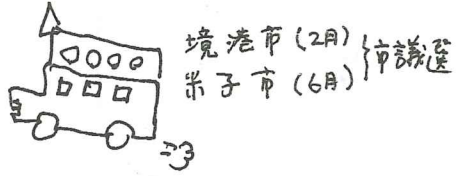 境港市(2月)
米子市(6月)
}市議選